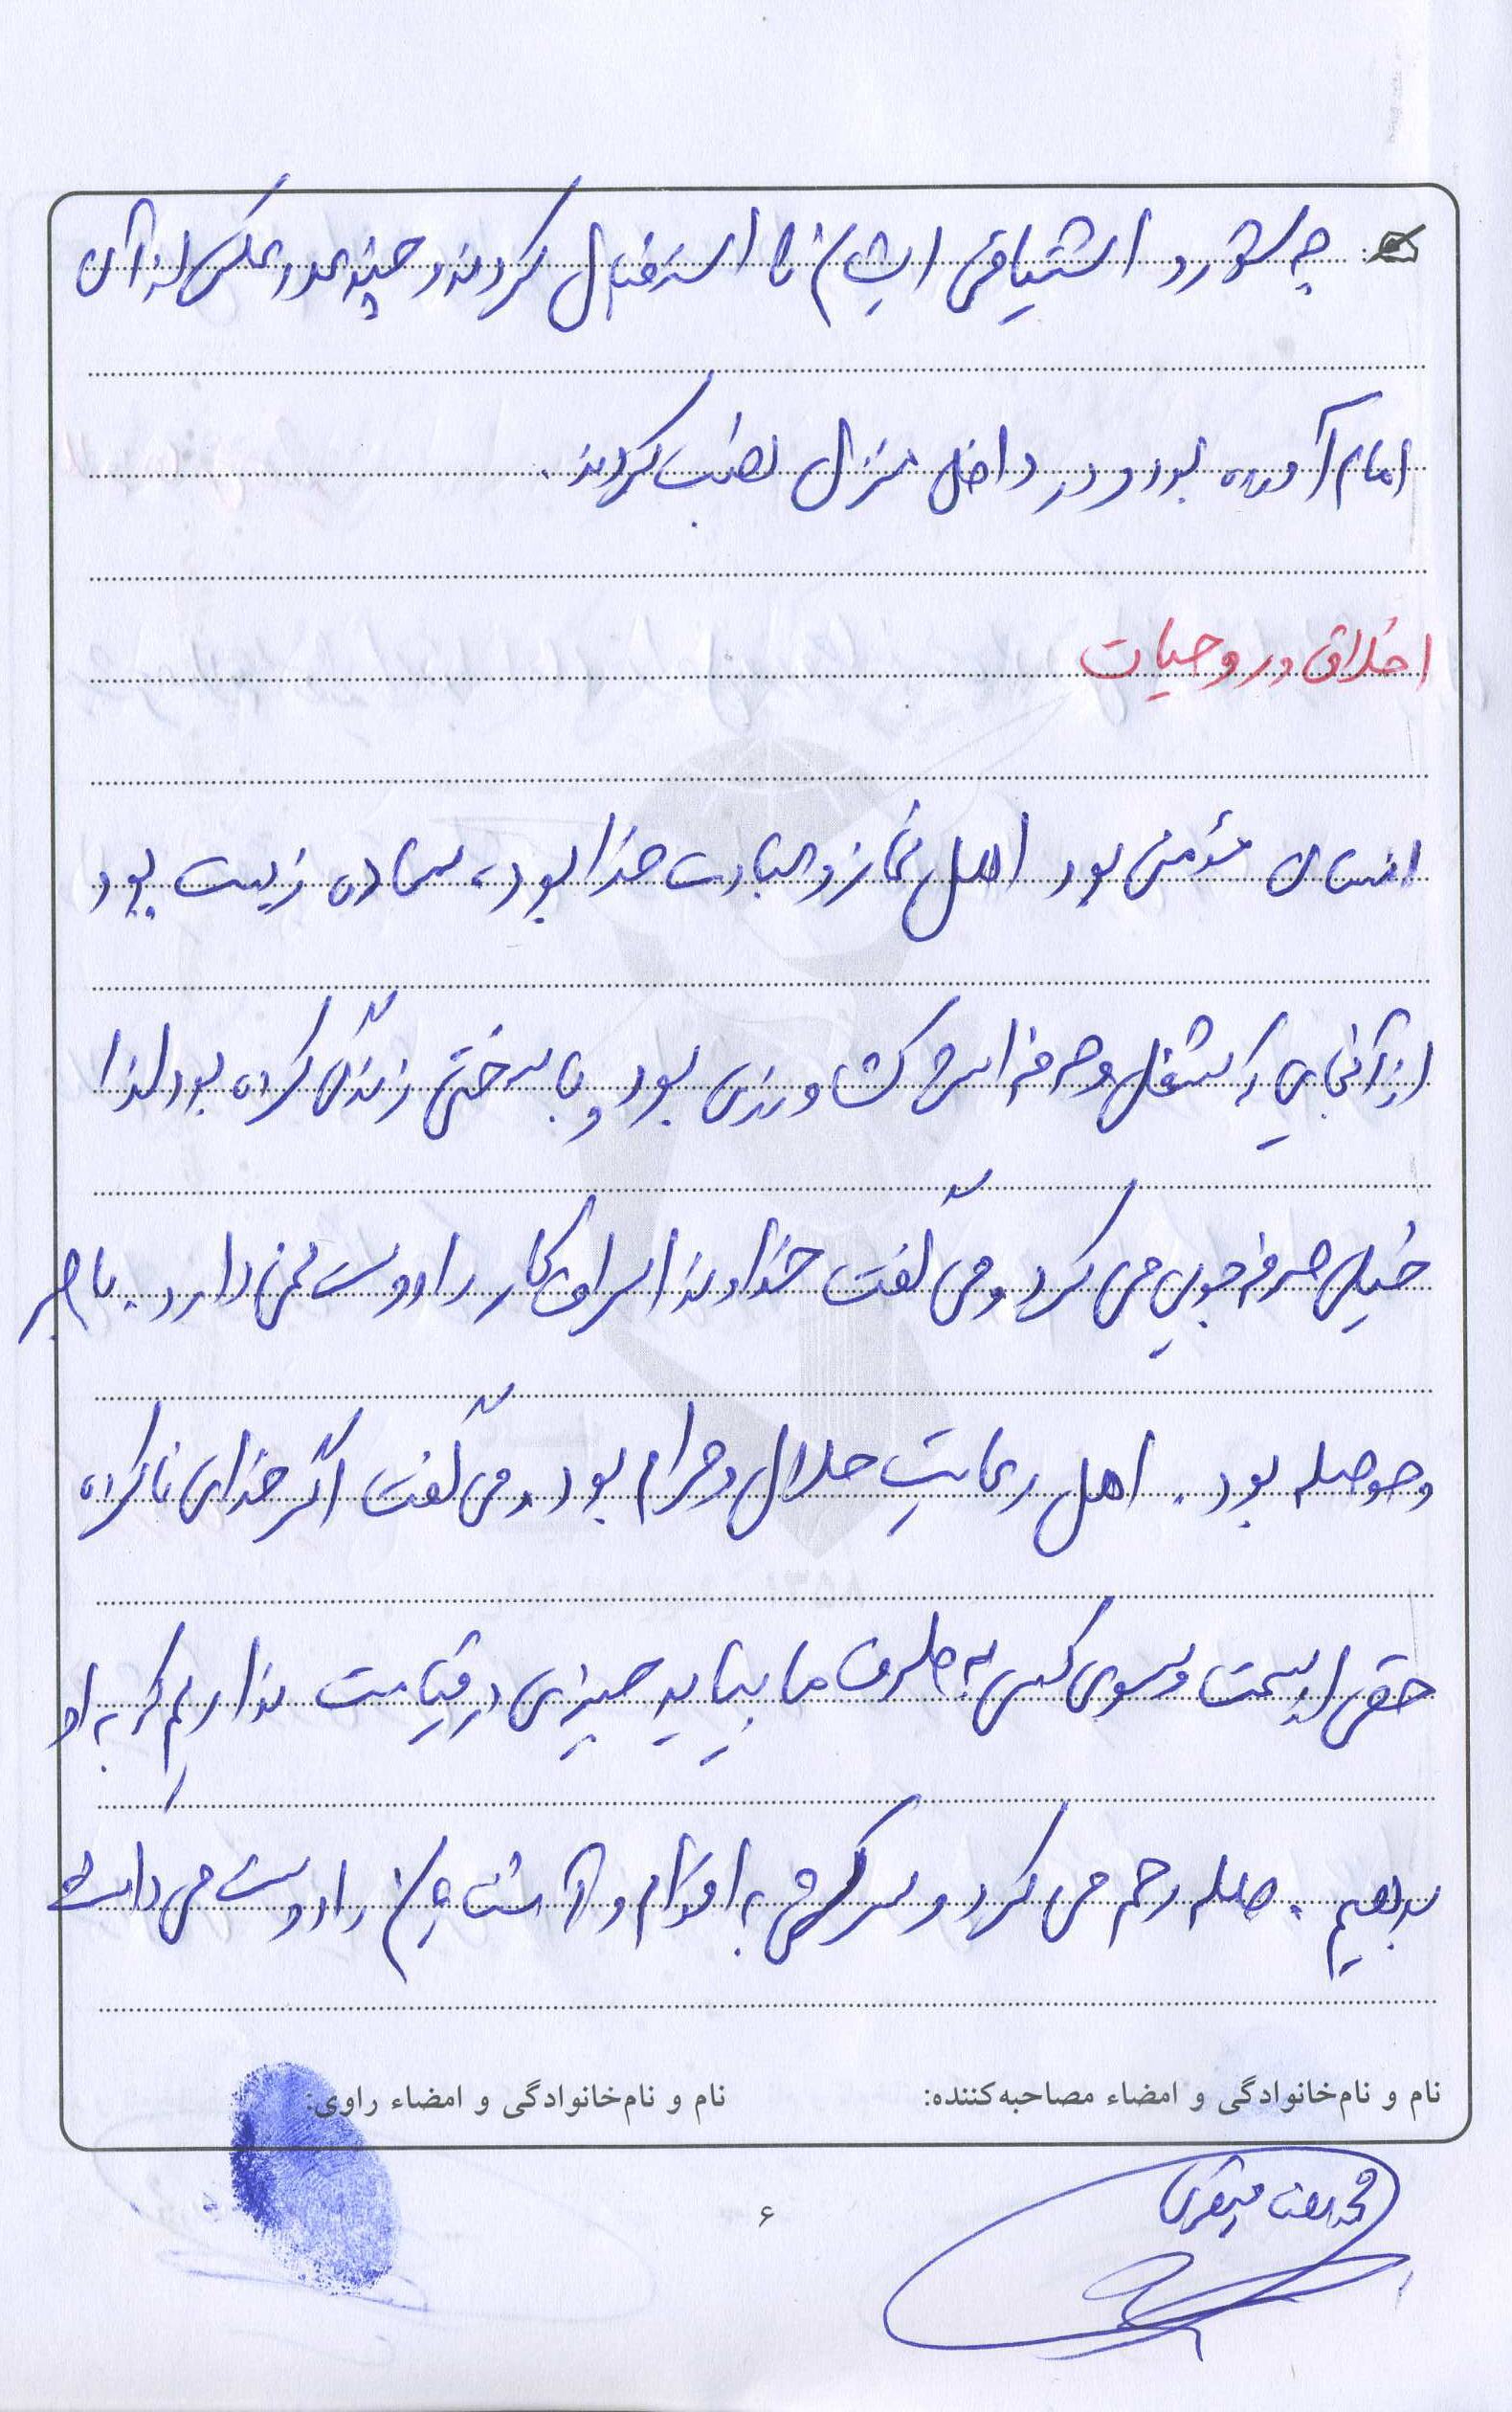 چه شور و اشتیاقی ایشان را استقبال کردند و چند عدد عکس از آن
امام آمده بود و در داخل منزل نصب کردند.
اخلاق و روحیات
انسان مؤمنی بود اهل نماز و عبادت خدا بود، ساده زیست بود
از آنجایی که شغل و حرفه اش کشاورزی بود و با سختی زندگی کرده بود لذا
خیلی صرفه جویی می کرد و می گفت خداوند اسراف کار را دوست نمی دارد. با صبر
و حوصله بود. اهل رعایتِ حلال و حرام بود و می گفت اگر خدای ناکرده
حقی از سمت و سوی کسی به طرف ما بیاید چیزی در قیامت نداریم که به او
بدهیم. صله رحم می کرد و سرکشی به اقوام و آشنایان را دوست می داشت
نام و نام‌خانوادگی و امضاء مصاحبه‌کننده:
نام و نام‌خانوادگی و امضاء راوی:
۶